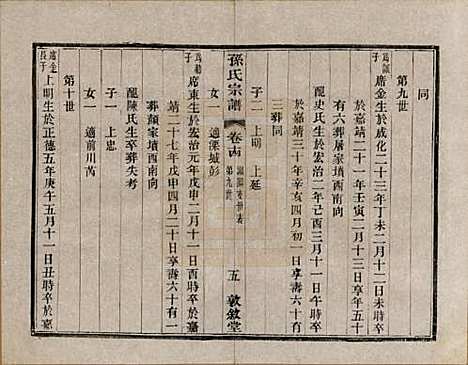 同
第九世
席金生於成化二十三年丁未二月十二日時卒
於嘉靖二十一年壬寅二月十三日享年五十
有六葬屠家墳西南向
配史氏生於宏治二年己酉三月十一日午時卒
於嘉靖三十年辛亥四月初一日享壽六十有
三葬同
子二 上明 上延
女一 適溧城彭
孫氏宗譜
卷六
第九世
五
敦敘堂
席東生於宏治元年戊申二月十一日酉時卒於嘉
靖二十七年戊申四月二十日享壽六十有一
葬顏家墳西南向
配陳氏生卒葬失考
子一 上忠
女一 適前川芮
第十世
席金長子
上明生於正德五年庚午五月十一日丑時卒於嘉